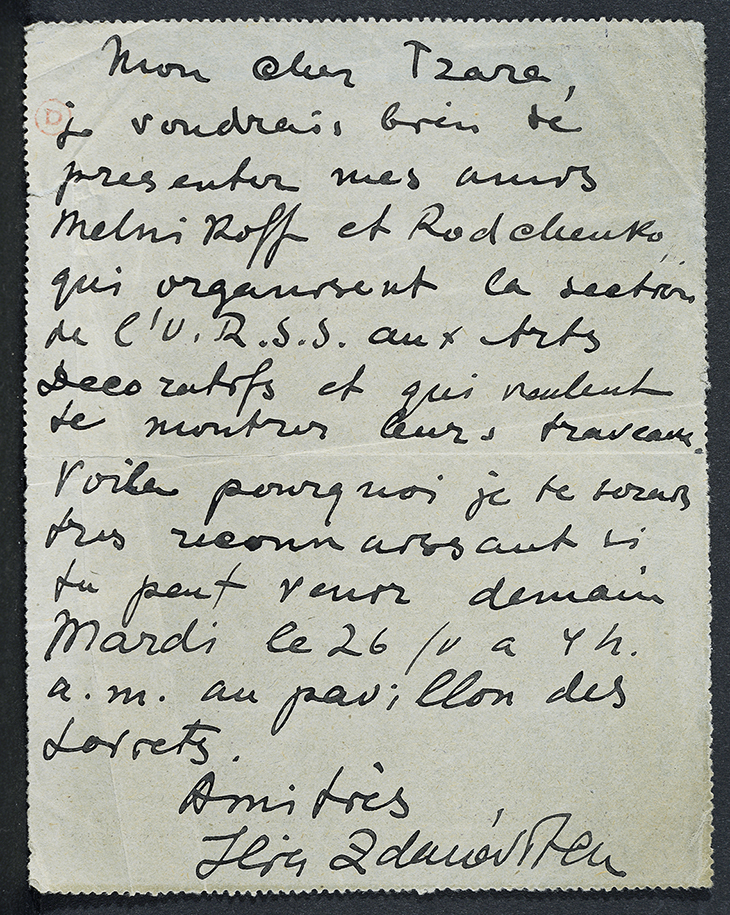 Mon cher Tzara,
D
je voudrais bien te
presenter mes amis
Melnikoff et Rodchenko,
qui organisent la section
de l'U.R.S.S. aux Arts
Decoratifs et qui veulent
te montrer leurs travaux.
Voila pourquoi je te serais
tres reconnaissant si
tu peut venir demain
Mardi le 26/V a 4 h.
a.m. au pavillon des
soviets.
Amitiés
Ilia Zdanévitch